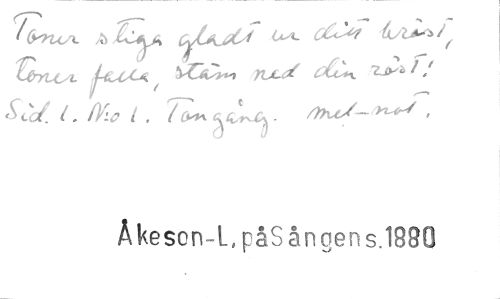 Toner stiga gladt ur ditt bröst,
toner falla, stäm ned din röst!
Sid. 1. N:o 1. Tongång. mel-not.
Åkeson-L, påSångens.1880